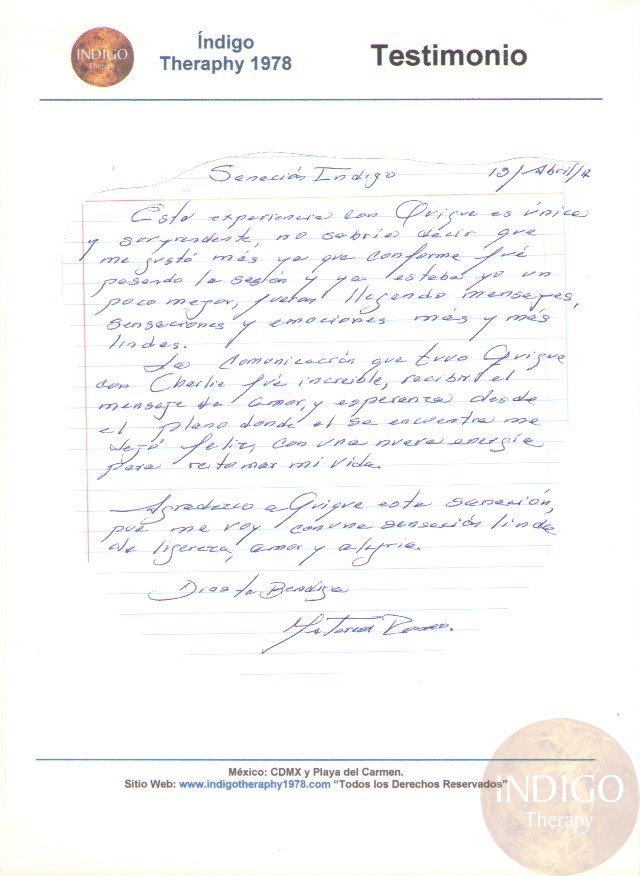 INDIGO
Therapy
Índigo
Theraphy 1978
Testimonio
Sanación Indigo 13/Abril/
Esta experiencia con Quique es única
y sorprendente, no sabría decir que
me gustó más ya que conforme fué
pasando la sesión y ya estaba yo un
poco mejor, fueron llegando mensajes,
sensaciones y emociones más y más
lindas.
La comunicación que tuvo Quique
con Charlie fué increible, recibir el
mensaje de amor, y esperanza desde
el plano donde el se encuentra me
dejó feliz, con una nueva energía
para retomar mi vida.
Agradezco a Quique esta sanación,
pué me voy con una sensación linda
de ligereza, amor y alegría.
Dios te Bendiga
Ma Teresa
México: CDMX y Playa del Carmen.
Sitio Web: www.indigotheraphy1978.com “Todos los Derechos Reservados”
INDIGO
Therapy